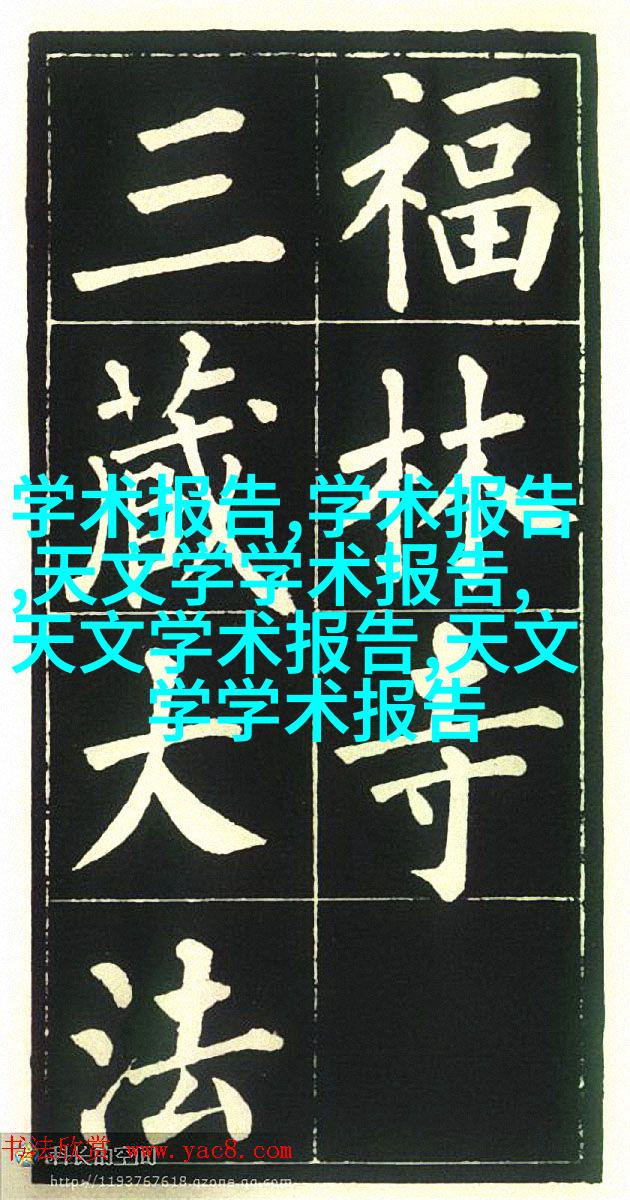 福林寺
三藏大法
学术报告,学术报告
,天文学学术报告,
天文学术报告,天文
学学术报告
书法欣赏 www.yac8.com
科长的空间
http://1193767618.qzone.qq.com